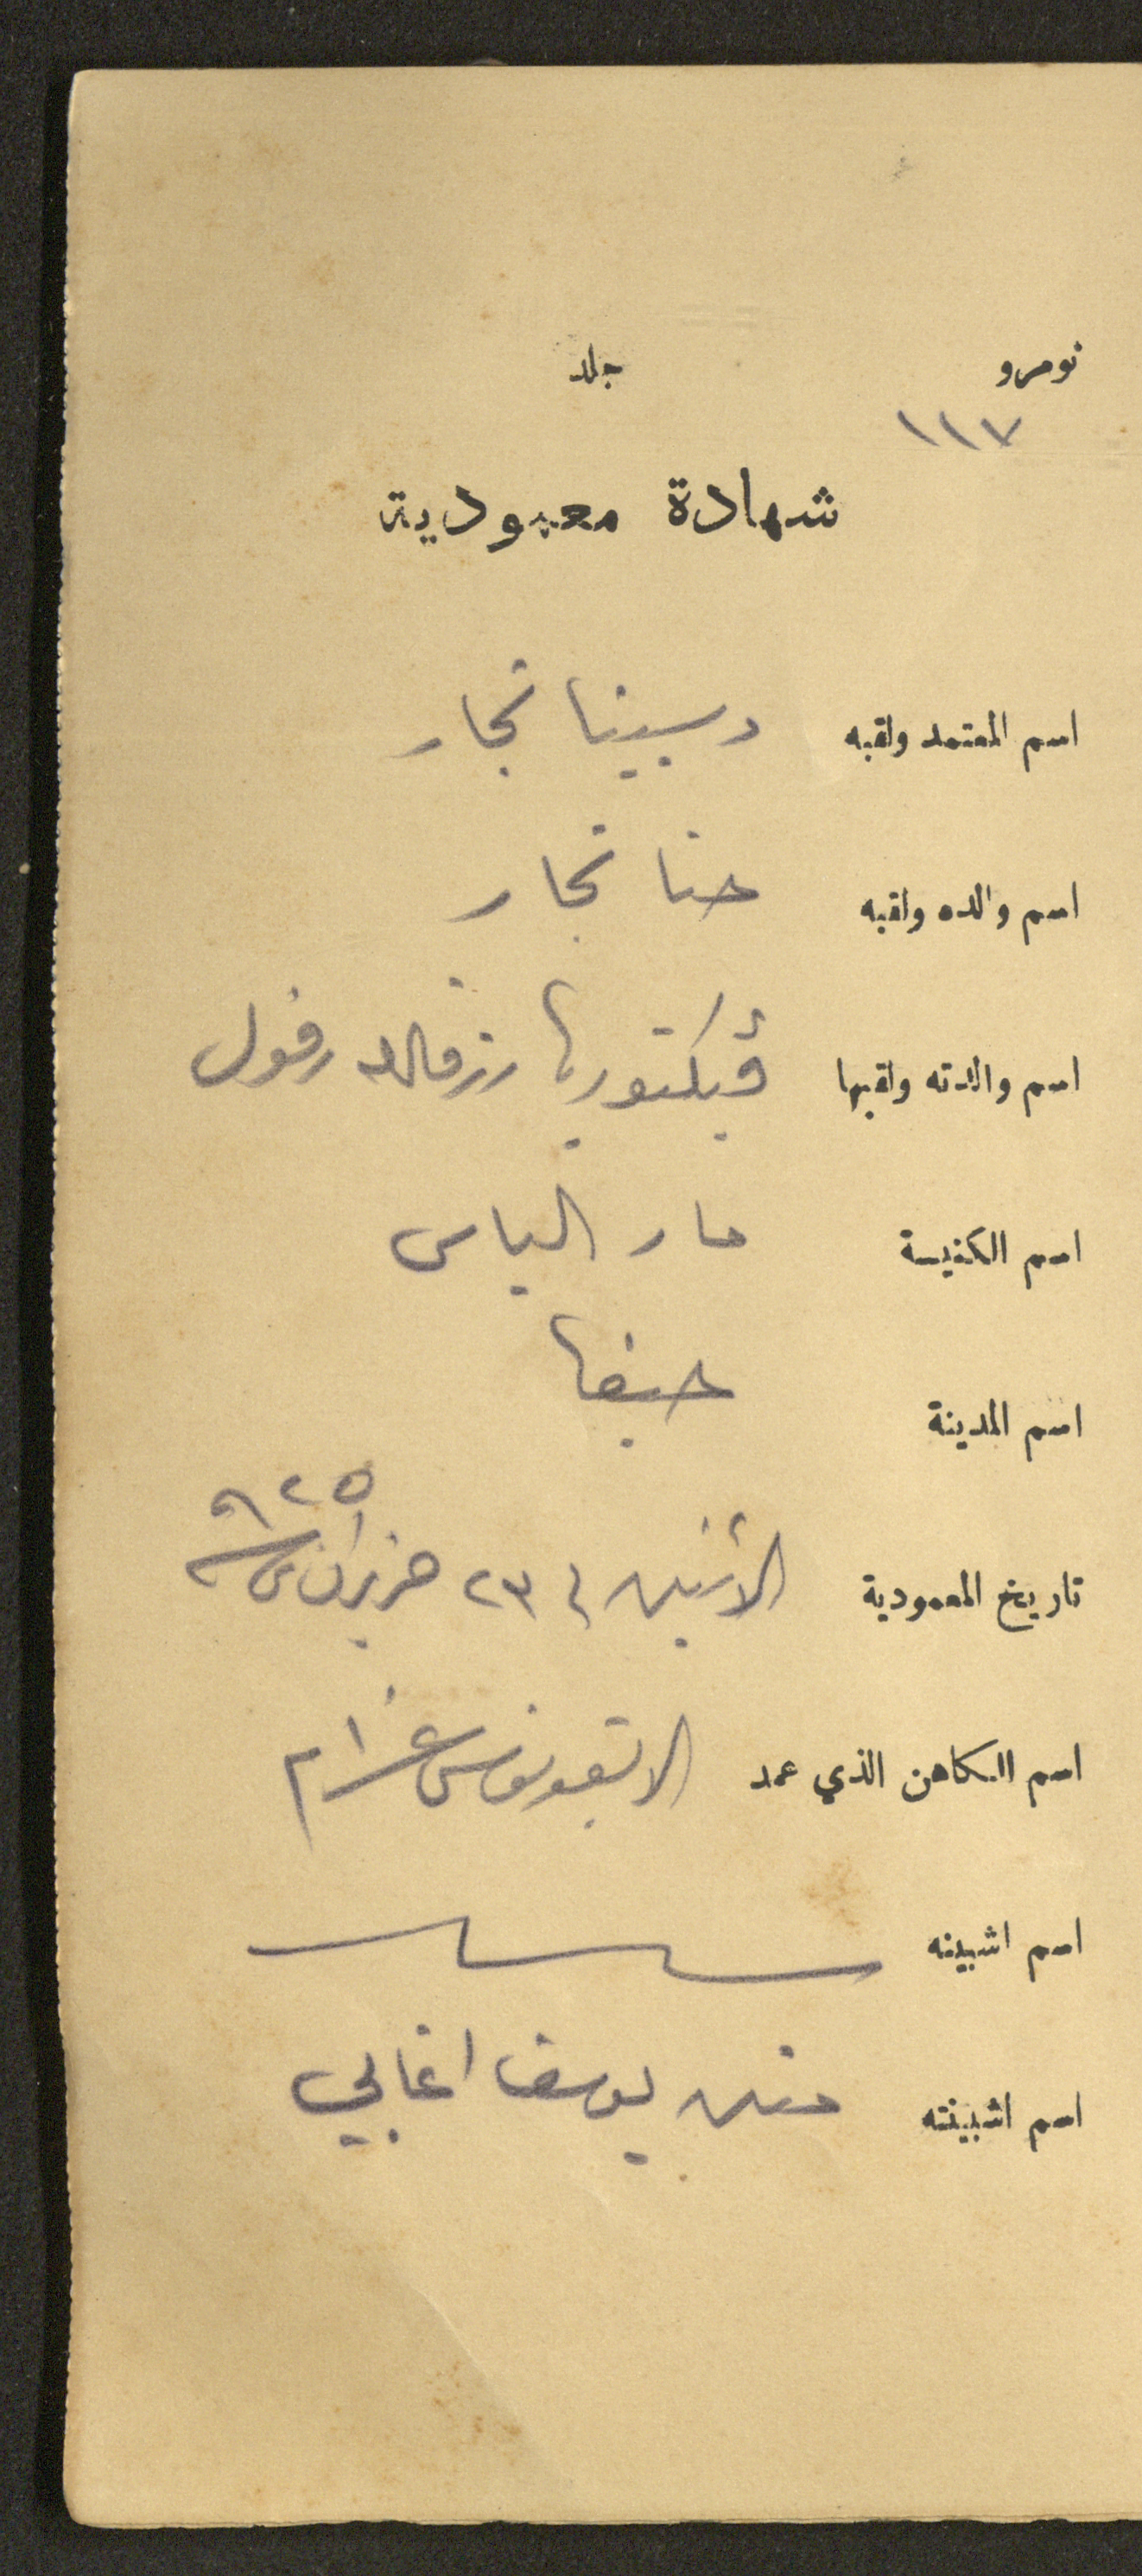 نومرو جلد
١١٧
شهادة معمودية
اسم المعتمد ولقبه دسبينا نجار
اسم والده ولقبه حنا نجار
اسم والدته ولقبها ڤيكتوريا رزق الله رفول
اسم الكنيسة مار الياس
اسم المدينة حيفا
تاريخ المعمودية الاثنين ٢٣ حزيران ٩٢٥
اسم الكاهن الذي عمد
اسم اشبينه
اسم اشبينته يوسف